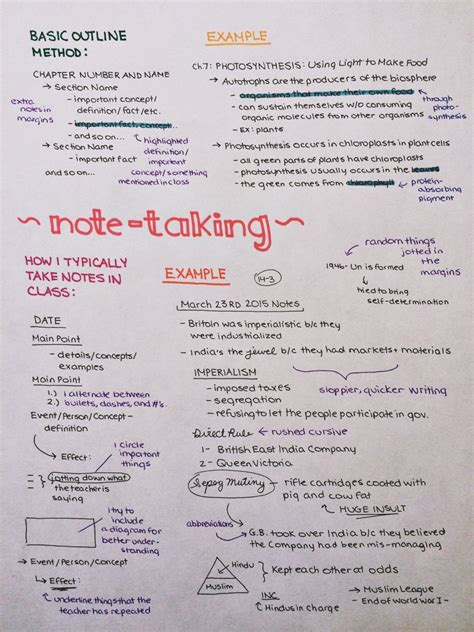 BASIC OUTLINE
METHOD:
CHAPTER NUMBER AND NAME
→ Section Name
- important concept/
definition/fact/etc.
- important fact, concept...
- and so on...
→ Section Name
- important fact
and so on...
extra
notes in
margins
highlighted
definition/
important
concept/something
mentioned in class
EXAMPLE
Ch7: PHOTOSYNTHESIS: Using Light to Make Food
→ Autotrophs are the producers of the biosphere
- organisms that make their own food
- can sustain themselves w/o consuming
organic molecules from other organisms
- EX: plants
through
photo-
synthesis
→ Photosynthesis occurs in chloroplasts in plant cells
- all green parts of plants have chloroplasts
- photosynthesis usually occurs in the leaves
- the green comes from chlorophyll
protein-
absorbing
pigment
~note-taking~
HOW I TYPICALLY
TAKE NOTES IN
CLASS:
DATE
Main Point
- details/concepts/
examples
Main Point
1.) I alternate between
2.) bullets, dashes, and #'s.
Event/Person/Concept -
definition
Effect:
I circle
important
things
jotting down what
the teacher is
saying
I try to
include
a diagram for
better under-
standing
→ Event/Person/Concept
↳ Effect:
underline things that the
teacher has repeated
EXAMPLE
14-3
random things
jotted in
the
margins
1946- Un is formed
tried to bring
self-determination
March 23RD 2015 Notes
- Britain was imperialistic b/c they
were industrialized
- India's the jewel b/c they had markets + materials
IMPERIALISM
- imposed taxes
- segregation
- refusing to let the people participate in gov.
sloppier, quicker writing
Direct Rule ← rushed cursive
1- British East India Company
2- Queen Victoria
Sepoy Mutiny - rifle cartridges coated with
pig and cow fat
↳ HUGE INSULT
abbreviations
→ G.B. took over India b/c they believed
the Company had been mis-managing
Hindu
Muslim
Kept each other at odds
INC
↳ Hindus in charge
→ Muslim League
- End of World War I -